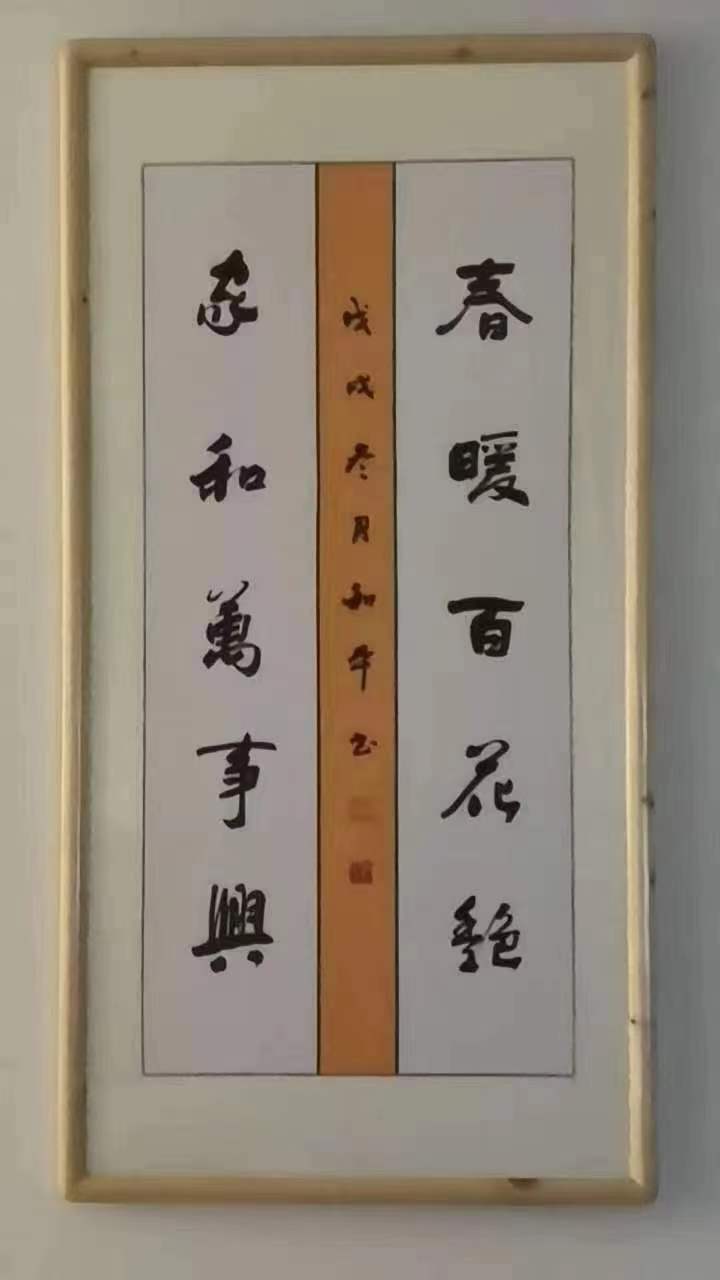 春暖百花艷
戊戌冬月和平书
家和萬事興